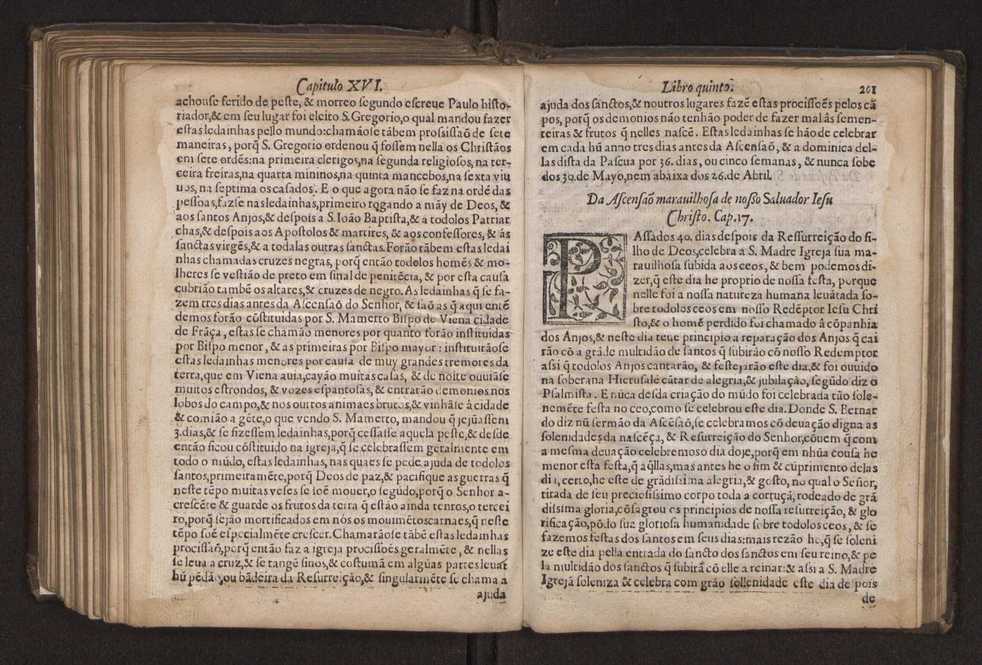 Capitulo XVI.
achouse ferido de peste, & morreo segundo escreue Paulo histo-
riador, & em seu lugar foi eleito S. Gregorio, o qual mandou fazer
estas ledainhas pello mundo: chamãose tãbem prosissaõ de sete
maneiras, porq̃ S. Gregorio ordenou q̃ fossem nella os Christãos
em sete ordẽs: na primeira clerigos, na segunda religiosos, na ter-
ceira freiras, na quarta mininos, na quinta mancebos, na sexta viu
uas, na septima os casados. E o que agora não se faz na ordẽ das
pessoas, fazse na ledainhas, primeiro rogando a mãy de Deos, &
aos santos Anjos, & despois a S. Ioão Baptista, & a todolos Patriar
chas, & despois aos Apostolos & martires, & aos confessores, & às
sanctas virgẽs, & a todalas outras sanctas. Forão tãbem estas ledai
nhas chamadas cruzes negras, porq̃ então todolos homẽs & mo-
lheres se vestião de preto em sinal de penitẽcia, & por esta causa
cubrião tambẽ os altares, & cruzes de negro. As ledainhas q̃ se fa-
zem tres dias antes da Ascensaõ do Senhor, & saõ as q̃ aqui entẽ
demos forão cõstituidas por S. Mamerto Bispo de Viena cidade
de Frãça, estas se chamão menores por quanto forão instituidas
por Bispo menor, & as primeiras por Bispo mayor: instituirãose
estas ledainhas menores por causa de muy grandes tremores da
terra, que em Viena auia, cayão muitas casas, & de noite ouuiãse
muitos estrondos, & vozes espantosas, & entrarão demonios nos
lobos do campo, & nos outros animaes brutos, & vinhãse à cidade
& comião a gẽte, o que vendo S. Mamerto, mandou q̃ jejũassem
3. dias, & se fizessem ledainhas, porq̃ cessasse aquela peste, & desde
então ficou cõstituido na igreja, q̃ se celebrassem geralmente em
todo o mũdo, estas ledainhas, nas quaes se pede ajuda de todolos
santos, primeiramẽte, porq̃ Deos de paz, & pacifique as guerras q̃
neste tẽpo muitas veses se soẽ mouer, o segũdo, porq̃ o Senhor a-
crescẽte & guarde os frutos da terra q̃ estão ainda tenros, o tercei
ro, porq̃ sejão mortificados em nós os mouimẽtos carnaes, q̃ neste
tẽpo soẽ especialmẽte crescer. Chamarãose tãbẽ estas ledainhas
procissaõ, porq̃ então faz a igreja procissoẽs geralmẽte, & nellas
se leua a cruz, & se tangẽ sinos, & costumã em algũas partes leuar
hũ pẽdão, ou bãdeira da Resurreição, & singularmẽte se chama a
ajuda
Libro quinto. 201
ajuda dos sanctos, & noutros lugares fazẽ estas procissoẽs pelos cã
pos, porq̃ os demonios não tenhão poder de fazer mal às semen-
teiras & frutos q̃ nelles nascẽ. Estas ledainhas se hão de celebrar
em cada hũ anno tres dias antes da Ascensaõ, & a dominica del-
las dista da Pascua por 36. dias, ou cinco semanas, & nunca sobe
dos 30. de Mayo, nem abaixa dos 26. de Abril.
Da Ascensaõ marauilhosa de nosso Saluador Iesu
Christo. Cap. 17.
PAssados 40. dias despois da Ressurreição do fi-
lho de Deos, celebra a S. Madre Igreja sua ma-
rauilhosa subida aos ceos, & bem podemos di-
zer, q̃ este dia he proprio de nossa festa, porque
nelle foi a nossa natureza humana leuãtada so-
bre todolos ceos em nosso Redẽptor Iesu Chri
sto, & o homẽ perdido foi chamado â cõpanhia
dos Anjos, & neste dia teue principio a reparação dos Anjos q̃ cai
rão cõ a grãde multidão de santos q̃ subirão cõ nosso Redemptor
assi q̃ todolos Anjos cantarão, & festejarão este dia, & foi ouuido
na soberana Hierusalẽ cãtar de alegria, & jubilação, segũdo diz o
Psalmista. E nũca desda criação do mũdo foi celebrada tão sole-
nemẽte festa no ceo, como se celebrou este dia. Donde S. Bernar
do diz nũ sermão da Ascẽsaõ, se celebramos cõ deuação digna as
solenidades da nascẽça, & Resurreição do Senhor, cõuem q̃ com
a mesma deuação celebremos o dia doje, porq̃ em nhũa cousa he
menor esta festa, q̃ aq̃llas, mas antes he o fim & cũprimento delas
dia, certo, he este de grãdissima alegria, & gosto, no qual o Señor,
tirada de seu preciosissimo corpo toda a cortuçã, rodeado de grã
dissima gloria, cõsagrou os principios de nossa resurreição, & glo
rificação, põdo sua gloriosa humanidade sobre todolos ceos, & se
fazemos festas dos santos em seus dias: mais rezão he, q̃ se soleni
ze este dia pella entrada do sancto dos sanctos em seu reino, & pe
la multidão dos sanctos q̃ subirã cõ elle a reinar: & assi a S. Madre
Igreja soleniza & celebra com grão sollenidade este dia de pois
de